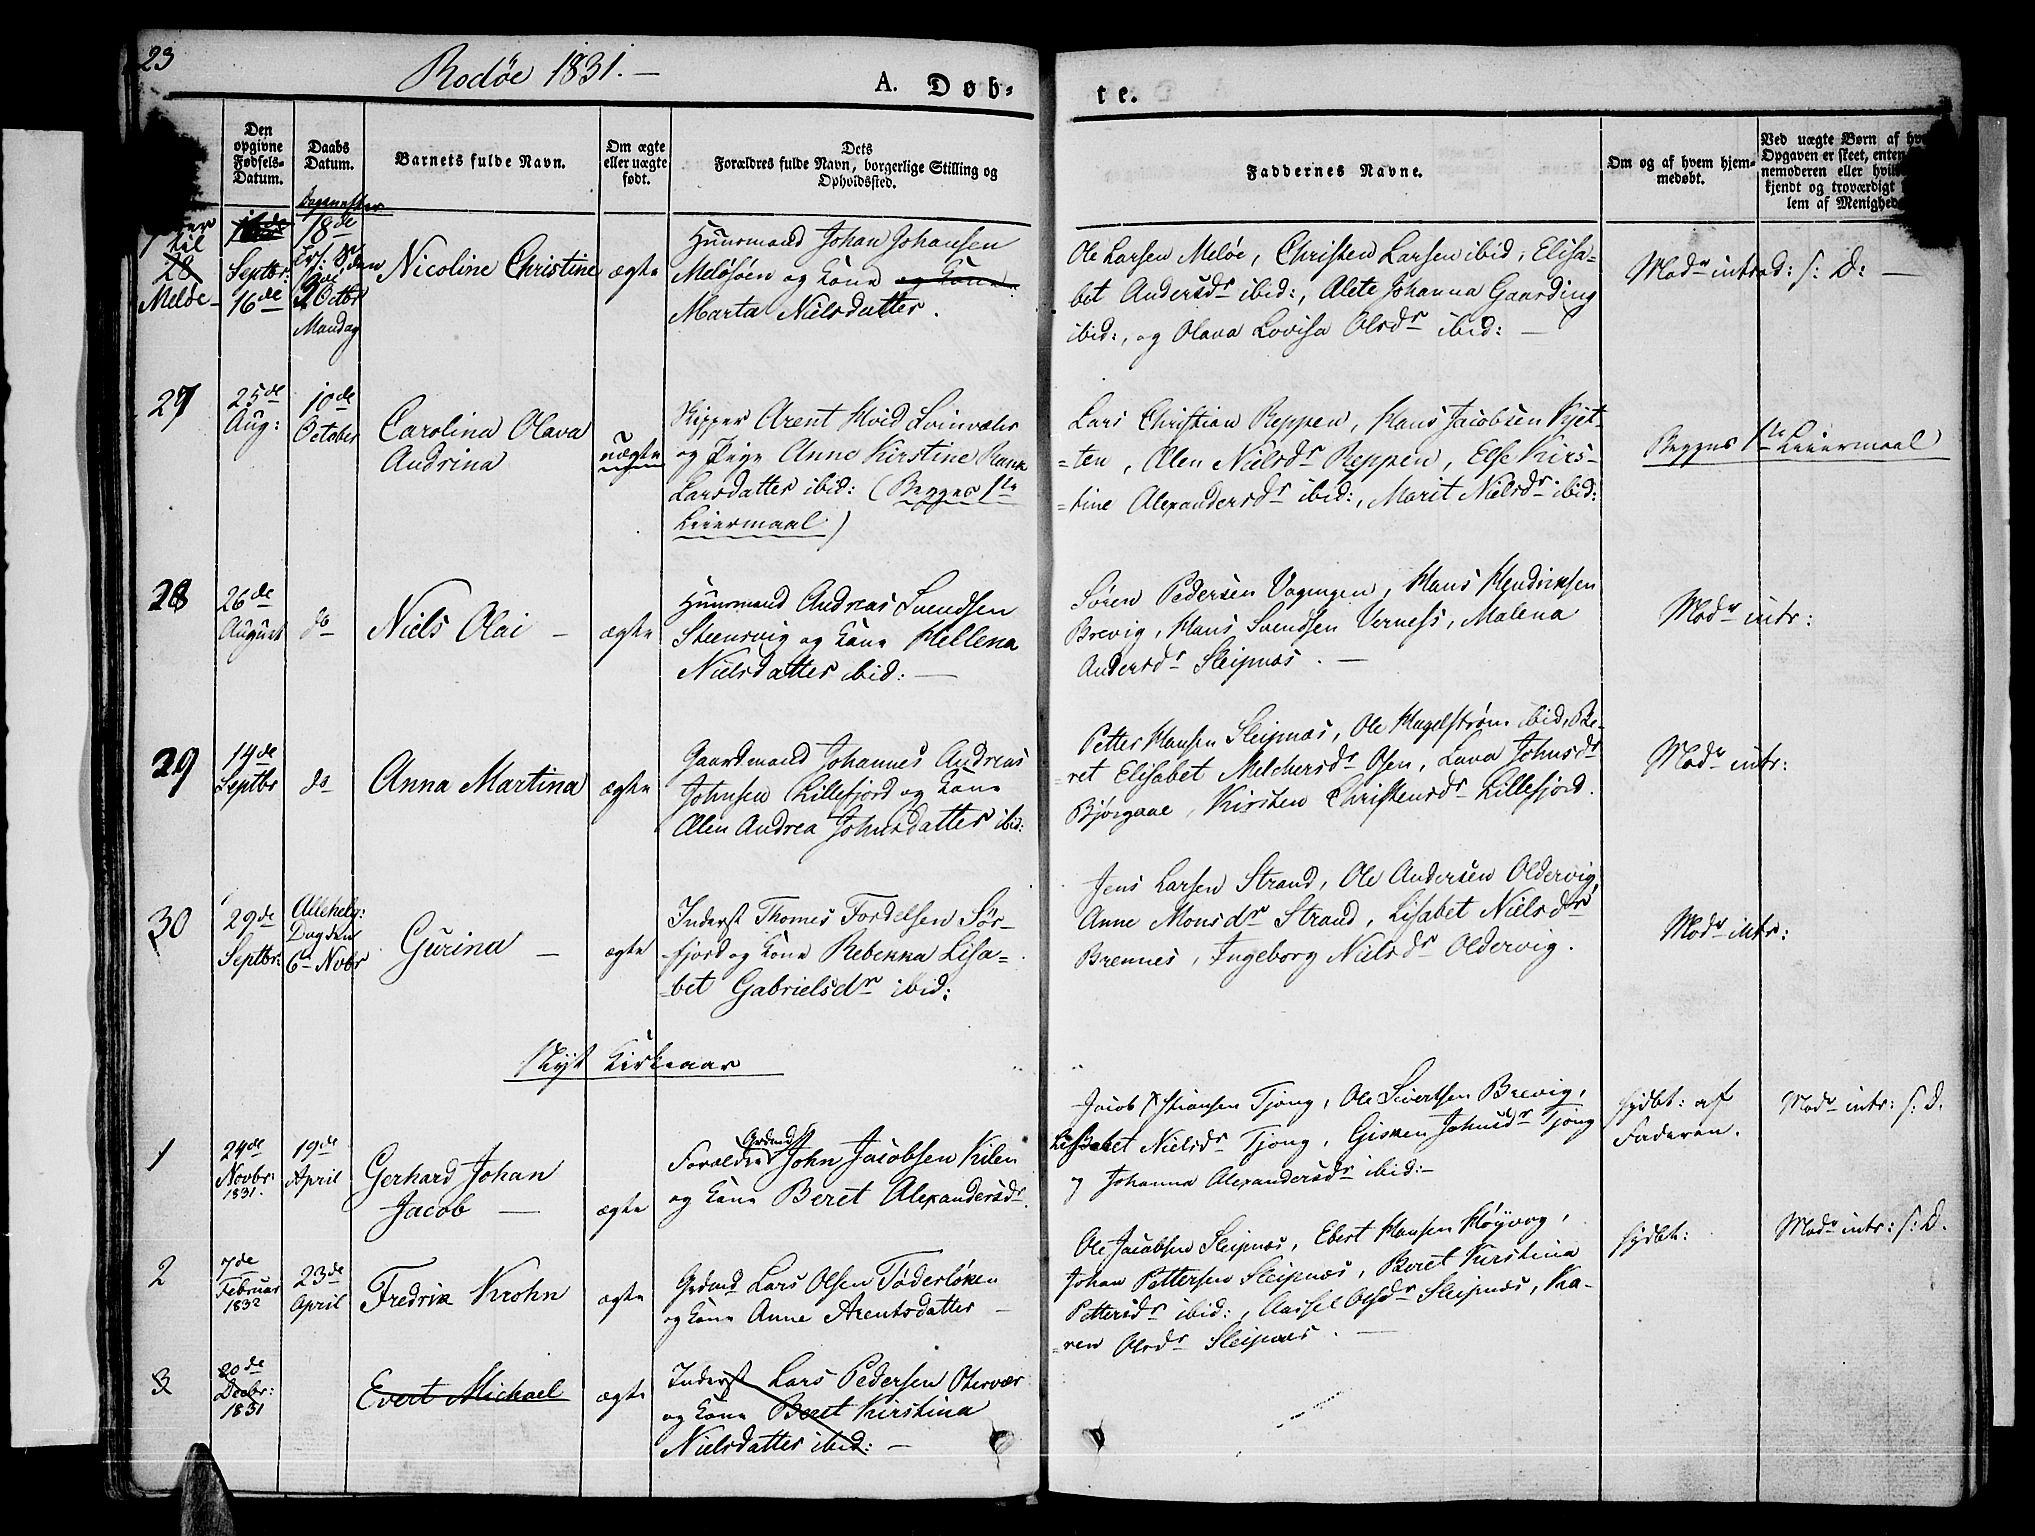 23
Rodøe 1831. —
A. Døb-
te.
Den
opgivne
Fødsels-
Datum.
Daabs
Datum.
Barnets fulde Navn.
Om ægte
eller uægte
født.
Dets
Forældres fulde Navn, borgerlige Stilling og
Opholdssted.
Faddernes Navne.
Om og af hvem hjem-
medøbt.
Ved uægte Børn af
Opgaven er skeet, enten
nemoderen eller
kjendt og troværdigt
lem af Menighed
til
28
Meløe
Septbr:
16de
18de
2 Octbr
Mandag
Nicoline Christine
ægte
Huusmand Johan Johansen
Meløsöen og Kone og Kone
Marta Nielsdatter.
Ole Larsen Meløe, Christen Larsen ibid:, Elisa-
bet Andersdr ibid:, Alete Johanna Gaarding
ibid:, og Olava Lovisa Olsdr ibid: —
Modr introd: s: D: —
27
25de
Aug:
10de
October
Carolina Olava
Andrina
uægte
Skipper Arent Hvid Svinvær
og Pige Anne Kirstine
Larsdatter ibid: (Begges 1ste
Leiermaal)
Lars Christian Reppen, Hans Jacobsen Kjel-
=ten, Ælen Nielsdr Reppen, Else Kirs-
=tine Alexandersdr ibid:, Marit Nielsdr ibid:
Begges 1ste Leiermaal
28
26de
August
do
Niels Olai —
ægte
Huusmand Andreas Svendsen
Steensvig og Kone Hellena
Nielsdatter ibid: —
Søren Pedersen Vaagen, Hans Hendriksen
Brevig, Hans Svendsen Værnes, Malena
Andersdr Sleipnæs. —
Modr intr:
29
14de
Septbr
do
Anna Martina
ægte
Gaardmand Johannes Andreas
Johnsen Lillefjord og Kone
Ælen Andrea Johnsdatter ibid:
Petter Hansen Sleipnæs, Ole Hagelstrøm ibid, Be-
=ret Elisabet Melchersdr Osen, Lava Johnsdr
Bjørgaae, Kirsten Christensdr Lillefjord.
Modr intr:
30
29de
Septbr:
Allehelg:
Dag den
6te Novbr
Gurina —
ægte
Inderst Thomes Fordelsen Sør-
-fjord og Kone Rebekka Lisa=
-bet Gabrielsdr ibid:
Jens Larsen Strand, Ole Andersen Oldervig,
Anne Monsdr Strand, Lisabet Nielsdr
Brennes, Ingeborg Nielsdr Oldervig.
Modr intr:
Nyt Kirkeaar
1
24de
Novbr:
1831.
19de
April
Gerhard Johan
Jacob —
ægte
Forældre Grdmd John Jacobsen Kilen
og Kone Beret Alexandersdr
Jacob Christiansen Tjong, Ole Sivertsen Brevig,
Lisabet Nielsdr Tjong, Gisken Johnsdr Tjong
og Johanna Alexandersdr ibid:—
hjdbt: af
Faderen.
Modr intr: s: D.
2
7de
Februar
1832
23de
April
Fredrik Krohn
ægte
Grdmd Lars Olsen Töderløken
og Kone Anne Arentsdatter —
Ole Jacobsen Sleipnæs, Ebert Hansen Høyvog,
Johan Pettersen Sleipnæs, Beret Kirstina
Pettersdr ibid:, Aassel Olsdr Sleipnæs, Ka-
=ren Olsdr Sleipnæs. —
hjdbt:
Modr intr: s: D.
3
20de
Decbr:
1831
Evert Michael
ægte
Inderst Lars Pedersen Otervær
og Kone Beret Kirstina
Nielsdatter ibid: —